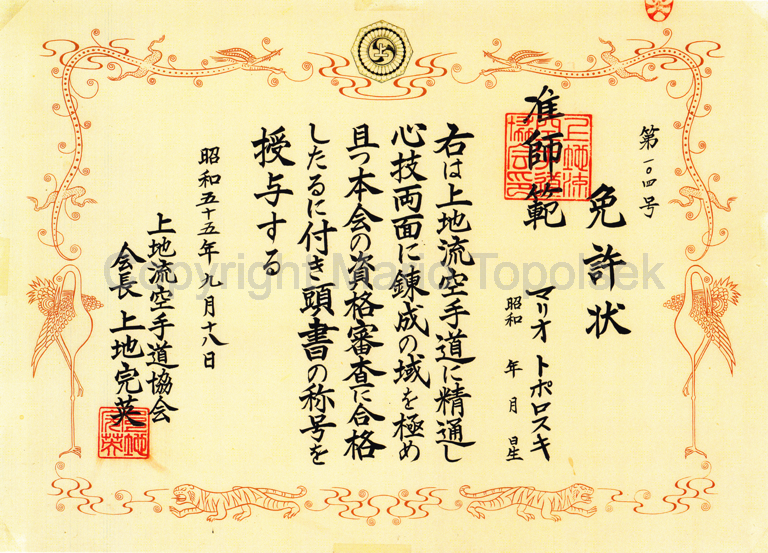 第一〇四号
免許状
准師範
マリオ トポロスキ
昭和 年 月 日生
右は上地流空手道に精通し
心技両面に錬成の域を極め
且つ本会の資格審査に合格
したるに付き頭書の称号を
授与する
昭和五十五年九月十八日
上地流空手道協会
会長 上地完英
Copyright Mario Topolsek